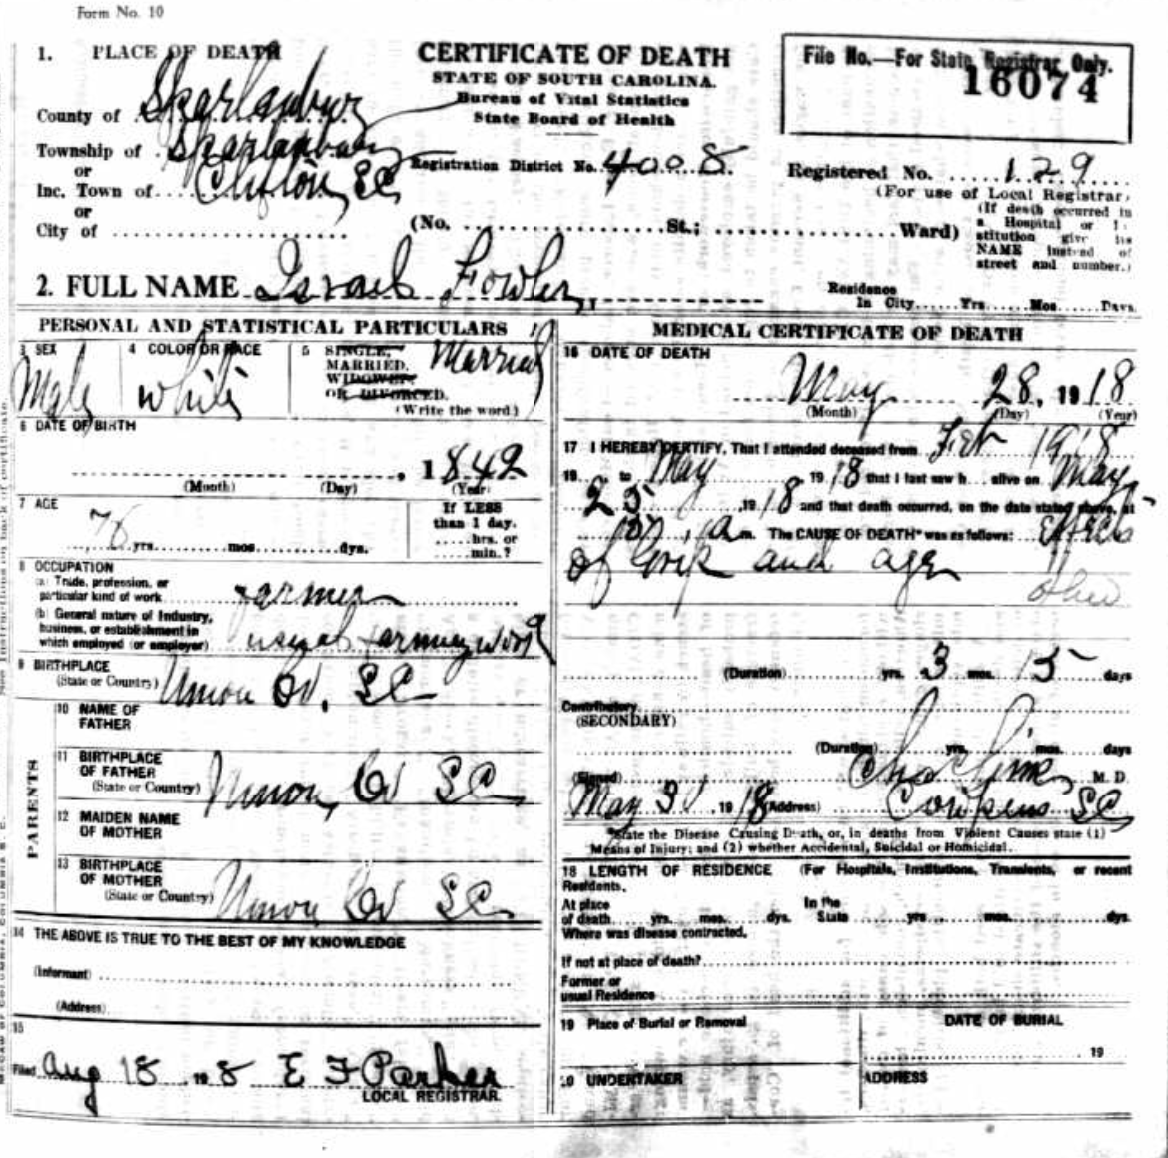 Form No. 10
1. PLACE OF DEATH
County of Spartanburg
Township of Spartanburg
or
Inc. Town of Clifton, SC
or
City of
CERTIFICATE OF DEATH
STATE OF SOUTH CAROLINA.
Bureau of Vital Statistics
State Board of Health
Registration District No. 4008
(No. St.; Ward)
File No.—For State Registrar Only.
16074
Registered No. 129
(For use of Local Registrar)
(If death occurred in
a Hospital or In
stitution give its
NAME instead of
street and number.)
2. FULL NAME Israel Fowler
Residence
In City Yrs. Mos. Days
PERSONAL AND STATISTICAL PARTICULARS
3 SEX
Male
4 COLOR OR RACE
White
5 SINGLE,
MARRIED,
WIDOWED,
OR DIVORCED.
(Write the word)
Married
6 DATE OF BIRTH
, 1842
(Month) (Day) (Year)
7 AGE
76 yrs. mos. dys.
If LESS
than 1 day.
hrs. or
min.?
8 OCCUPATION
(a) Trade, profession, or
particular kind of work farmer
(b) General nature of Industry,
business, or establishment in
which employed (or employer) usual farming work
9 BIRTHPLACE
(State or Country) Union Co, SC
PARENTS
10 NAME OF
FATHER
11 BIRTHPLACE
OF FATHER
(State or Country) Union, Co SC
12 MAIDEN NAME
OF MOTHER
13 BIRTHPLACE
OF MOTHER
(State or Country) Union Co SC
14 THE ABOVE IS TRUE TO THE BEST OF MY KNOWLEDGE
(Informant)
(Address)
15
Filed Aug 18 198 E F Parker
LOCAL REGISTRAR.
MEDICAL CERTIFICATE OF DEATH
16 DATE OF DEATH
May 28, 1918
(Month) (Day) (Year)
17 I HEREBY CERTIFY, That I attended deceased from Feb 1918
19 to May 1918 that I last saw h alive on May
25 , 1918 and that death occurred, on the date stated above, at
m. The CAUSE OF DEATH* was as follows: effects
of Grip and age
(Duration) yrs. 3 mos. 15 days
Contributory
(SECONDARY)
(Duration) yrs. mos. days
(Signed) M. D.
May 30 1918 (Address) Cowpens SC
*State the Disease Causing Death, or, in deaths from Violent Causes state (1)
Means of Injury; and (2) whether Accidental, Suicidal or Homicidal.
18 LENGTH OF RESIDENCE (For Hospitals, Institutions, Transients, or recent
Residents.
At place In the
of death yrs. mos. dys. State yrs. mos. dys.
Where was disease contracted,
If not at place of death?
Former or
usual Residence
19 Place of Burial or Removal
DATE OF BURIAL
19
20 UNDERTAKER
ADDRESS